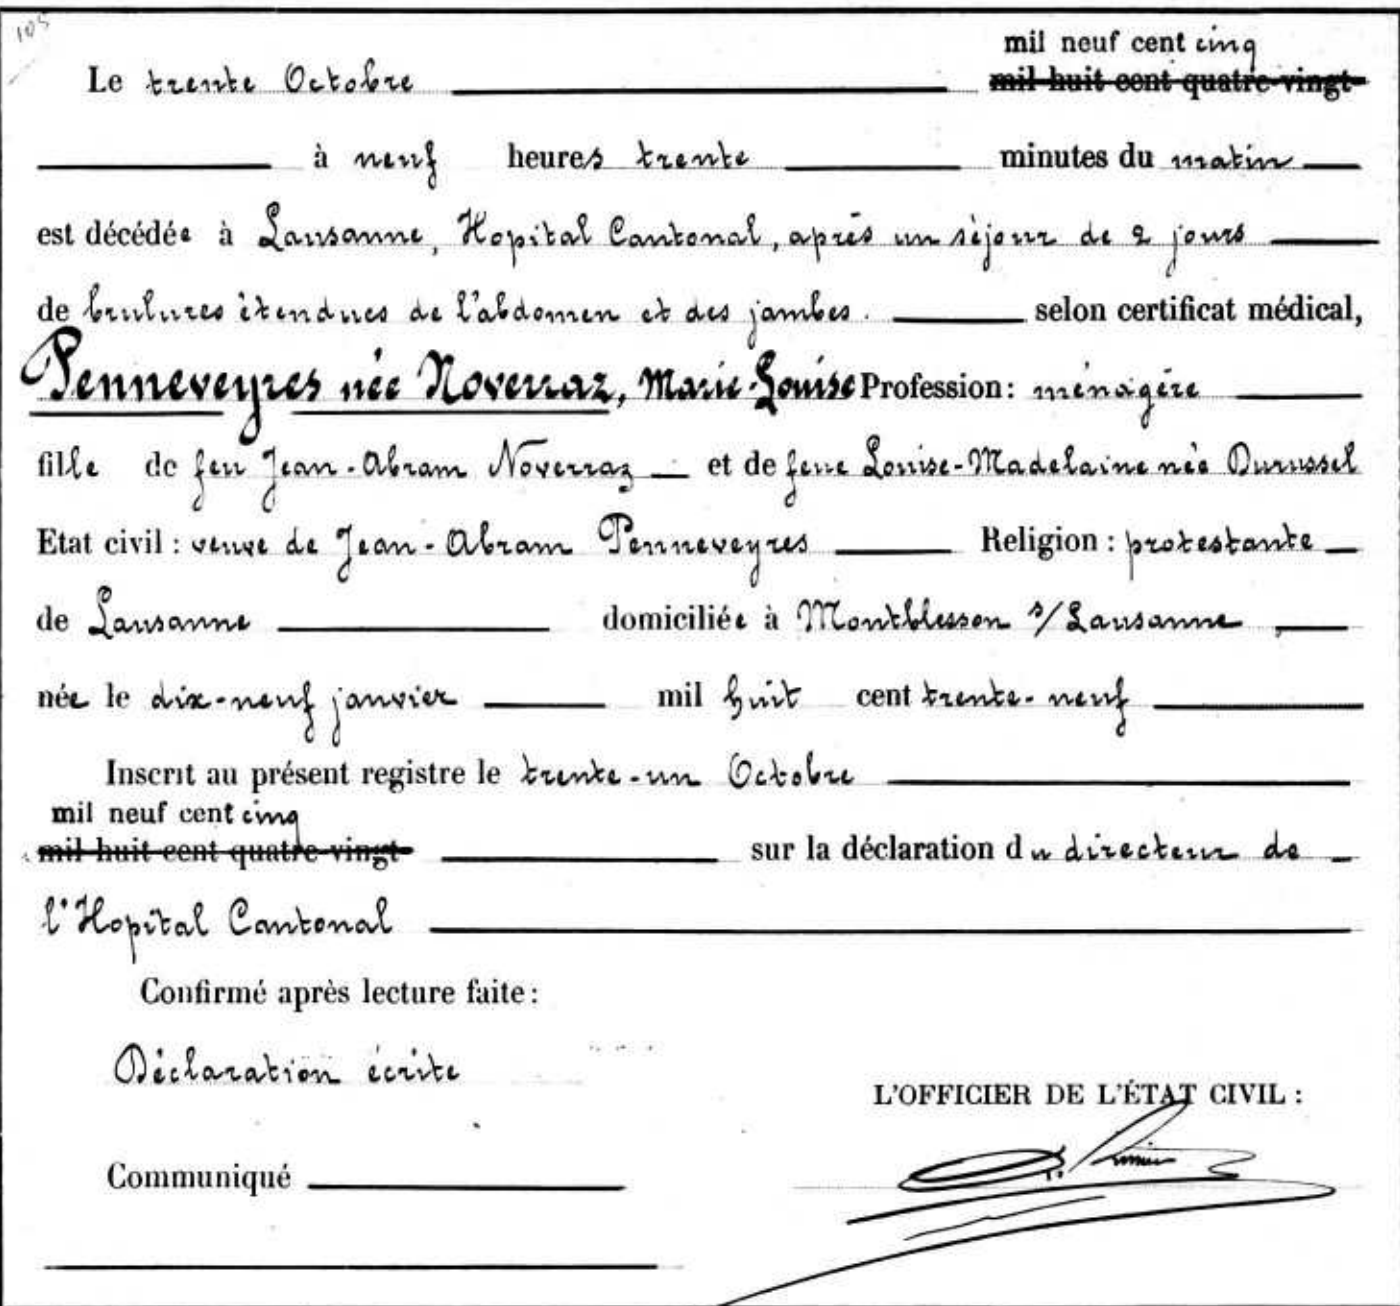 105
mil neuf cent cinq
Le trente Octobre mil huit cent quatre-vingt-
à neuf heures trente minutes du matin
est décédée à Lausanne, Hopital Cantonal, après un séjour de 2 jours
de brulures étendues de l'abdomen et des jambes. selon certificat médical,
Penneveyres née Noverraz, Marie-Louise Profession: ménagère
fille de feu Jean-Abram Noverraz et de feue Louise-Madelaine née Durussel
Etat civil : veuve de Jean-Abram Penneveyres Religion : protestante
de Lausanne domiciliée à Montblesson s/Lausanne,
née le dix-neuf janvier mil huit cent trente-neuf
Inscrit au présent registre le trente-un Octobre
mil neuf cent cinq
mil huit cent quatre-vingt- sur la déclaration du directeur de
l'Hopital Cantonal
Confirmé après lecture faite :
Déclaration écrite
L'OFFICIER DE L'ÉTAT CIVIL :
Communiqué